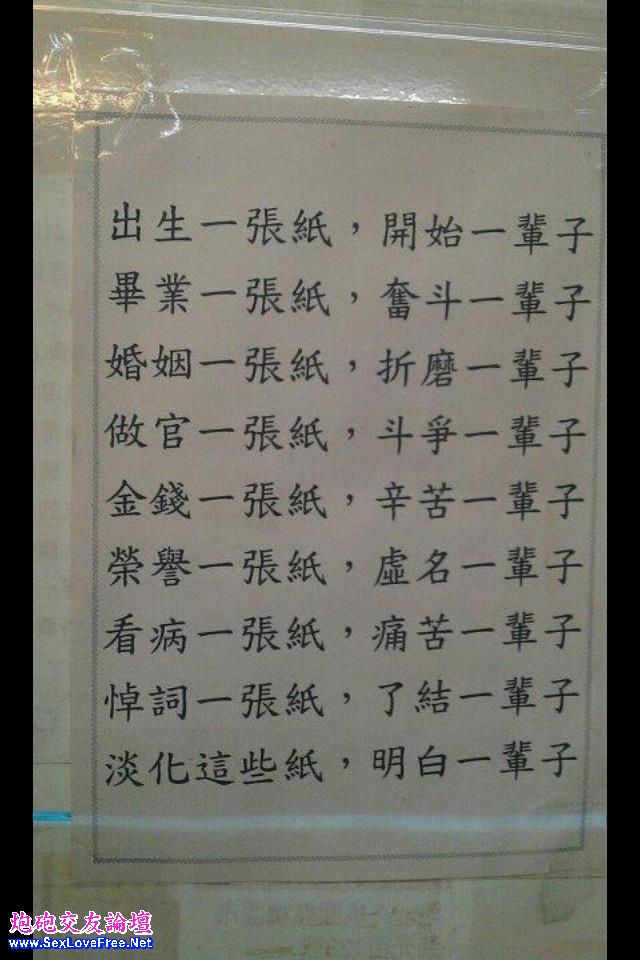 出生一張紙，開始一輩子
畢業一張紙，奮斗一輩子
婚姻一張紙，折磨一輩子
做官一張紙，斗爭一輩子
金錢一張紙，辛苦一輩子
榮譽一張紙，虛名一輩子
看病一張紙，痛苦一輩子
悼詞一張紙，了結一輩子
淡化這些紙，明白一輩子
炮砲交友論壇
www.SexLoveFree.Net